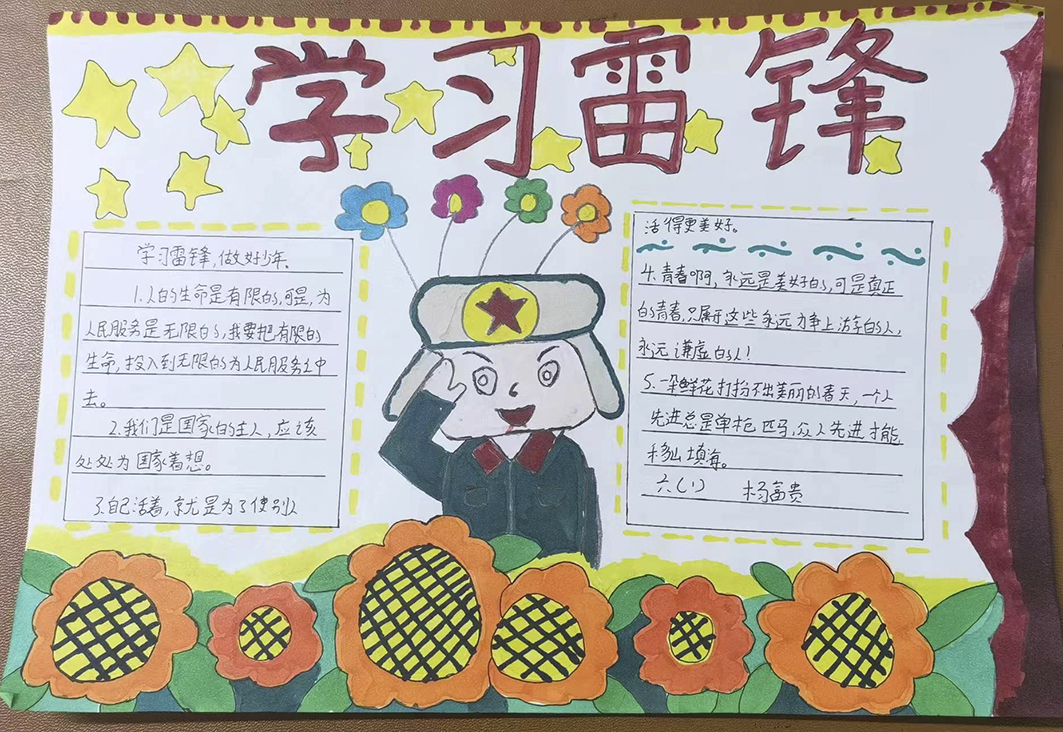 学习雷锋
学习雷锋,做好少年.
1.人的生命是有限的,可是,为
人民服务是无限的,我要把有限的
生命,投入到无限的为人民服务之中
去。
2.我们是国家的主人,应该
处处为国家着想。
3.自己活着,就是为了使别人
活得更美好。
4.青春啊,永远是美好的,可是真正
的青春,只属于这些永远力争上游的人,
永远谦虚的人!
5.一朵鲜花打扮不出美丽的春天,一个人
先进总是单枪匹马,众人先进才能
移山填海。
六(1) 杨富贵